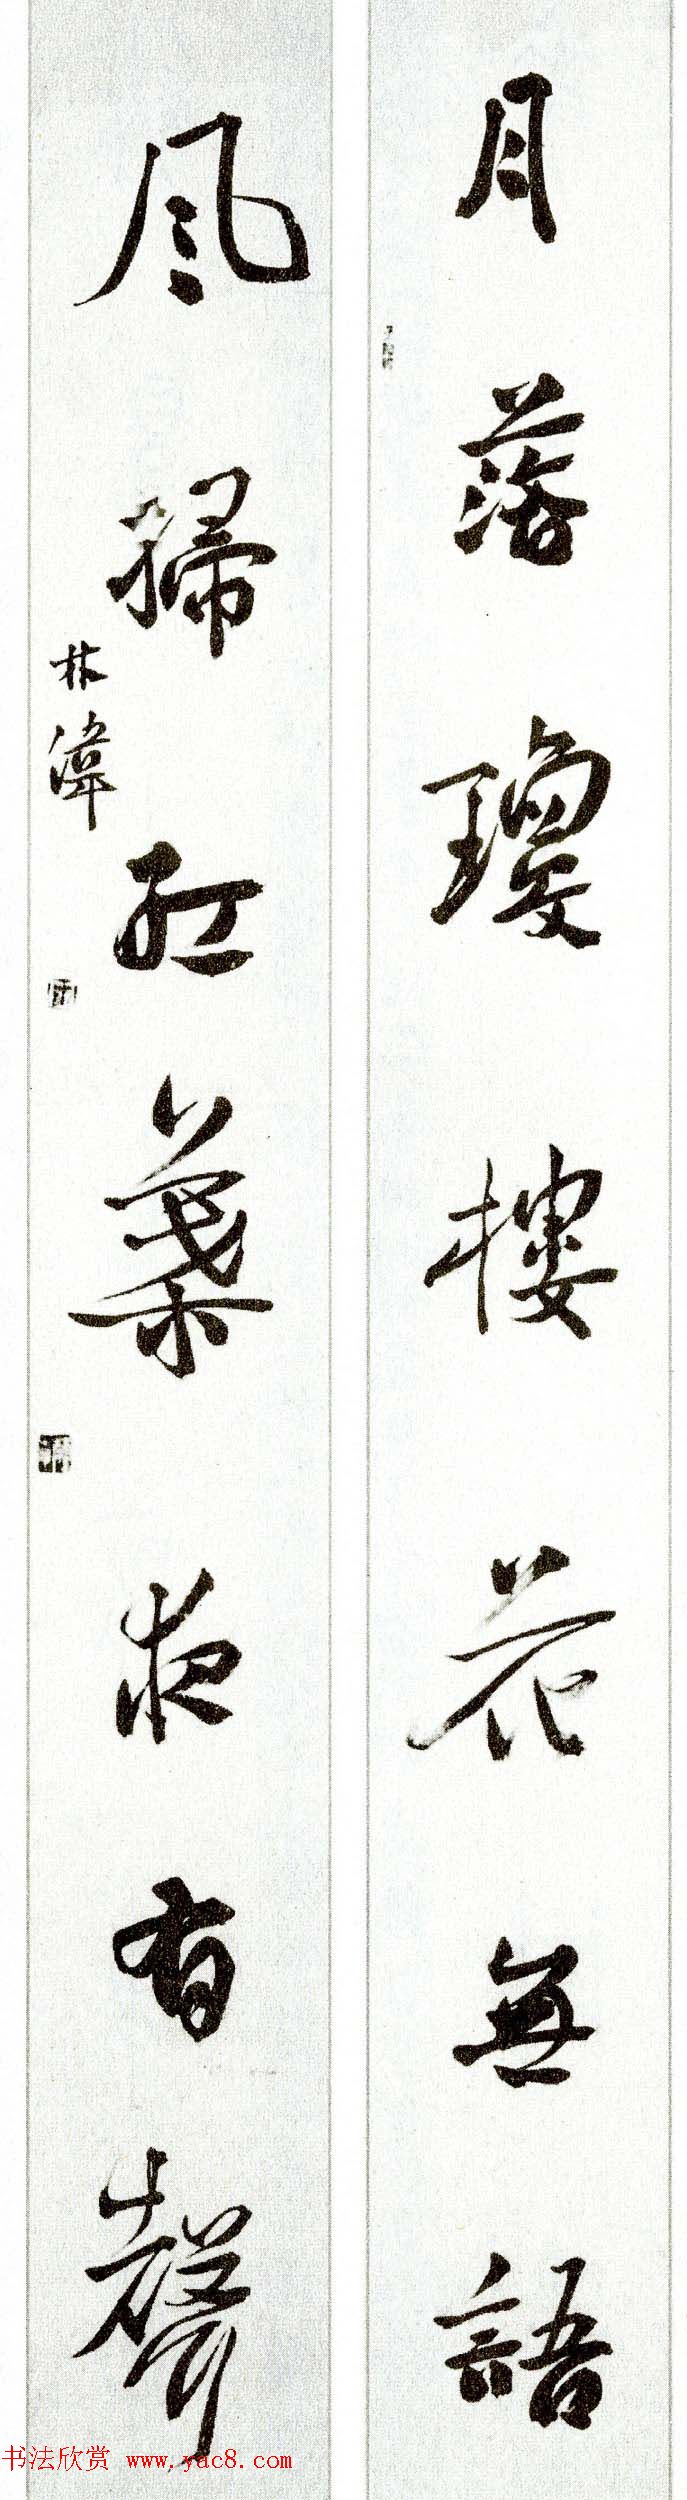 月落瓊樓花無語
風掃紅葉夜有聲
林偉
书法欣赏 www.yac8.com